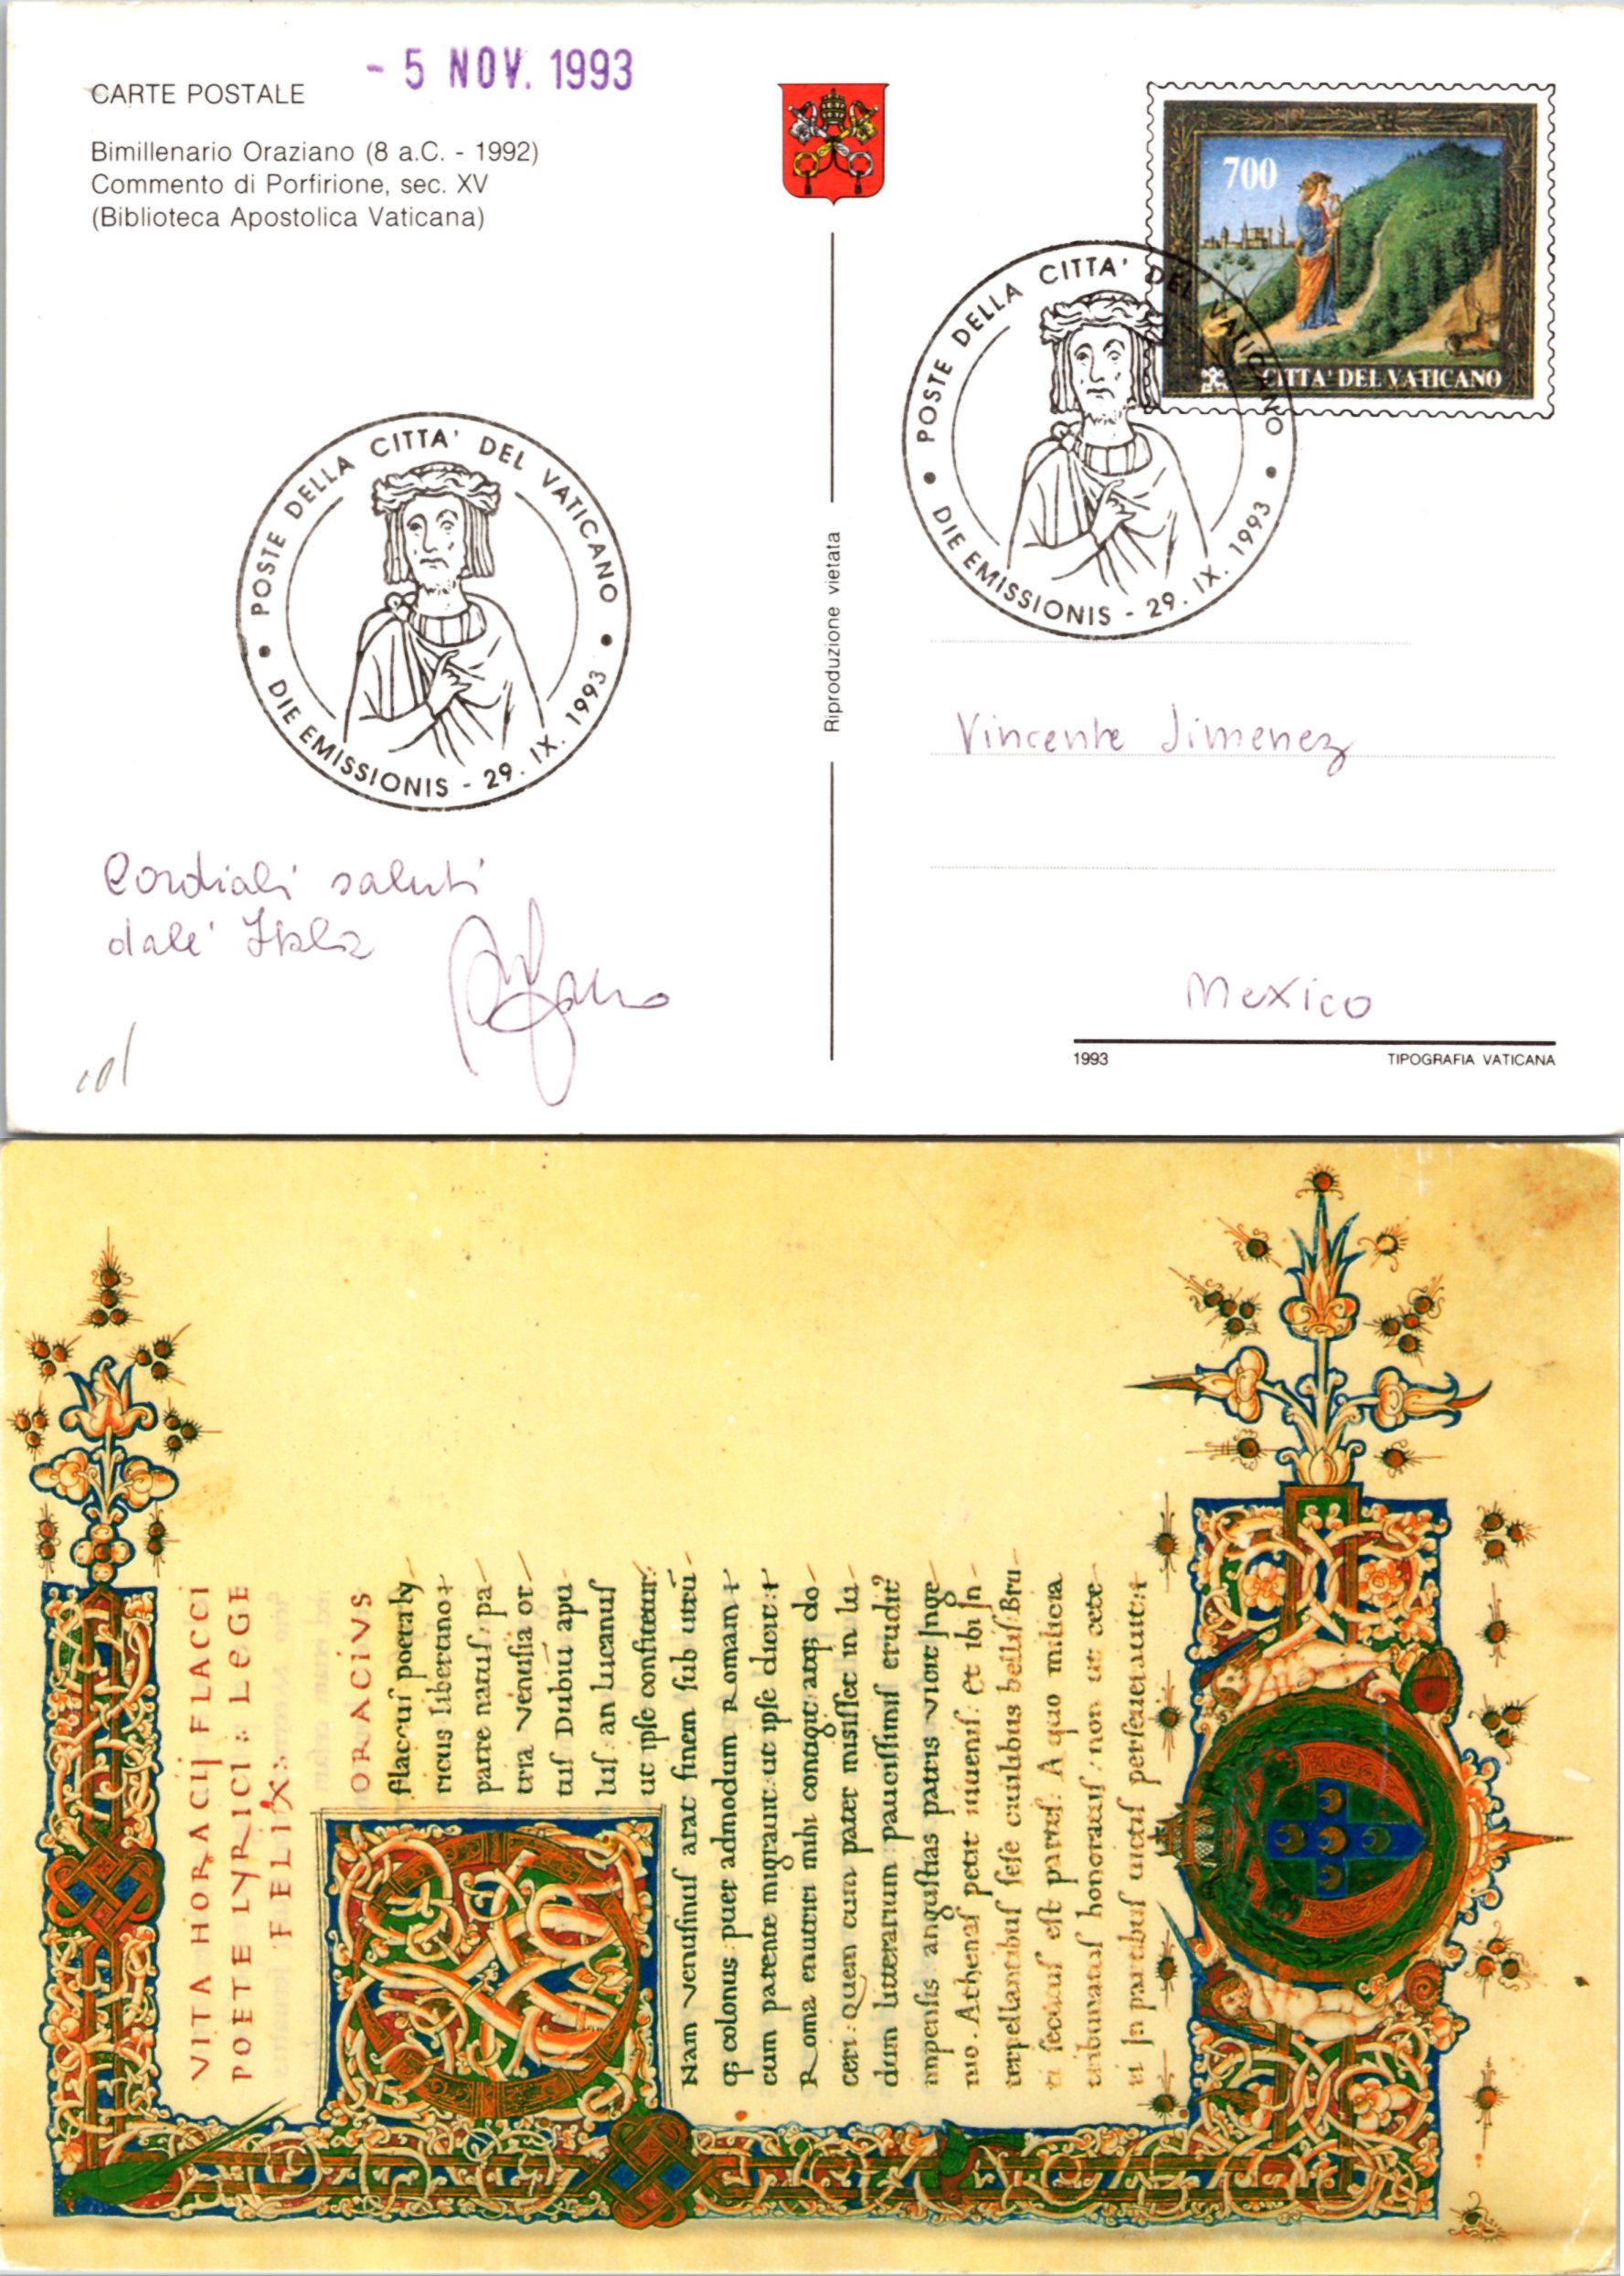 CARTE POSTALE
- 5 NOV. 1993
Bimillenario Oraziano (8 a.C. - 1992)
Commento di Porfirione, sec. XV
(Biblioteca Apostolica Vaticana)
700
CITTA' DEL VATICANO
POSTE DELLA CITTA' DEL VATICANO
DIE EMISSIONIS - 29. IX. 1993
POSTE DELLA CITTA' DEL VATICANO
DIE EMISSIONIS - 29. IX. 1993
Riproduzione vietata
Vincente Jimenez
Mexico
Cordiali saluti
dall' Italia
1993
TIPOGRAFIA VATICANA
VITA HORACIJ FLACCI
POETE LYRICI: LEGE
FELIX:
ORACIVS
flaccuſ poeta ly
ricus libertino
patre natuſ: pa
tria venuſia or
tuſ Dubiū apu
luſ: an lucanuſ
ut ipſe confitetur:
Nam venuſinuſ arat finem ſub utrū
qꝫ colonus: puer admodum Romam
cum parente migrauit: ut ipſe dicit:
Roma enutriri mihi contigit: atqꝫ do
ceri: quem cum pater misiſſet in lu
dum litterarum pauciſſimiſ erudit?
impenſis anguſtias patris vicit Inge
nio. Athenaſ petit iuueniſ: et ibi In
terpellantibuſ ſeſe ciuilibus belliſ: Bru
ti ſecutuſ eſt parteſ: A quo milicia
tribunatuſ honoratuſ: non ut cete
ri In partibuſ uictuſ perſeuerauit: